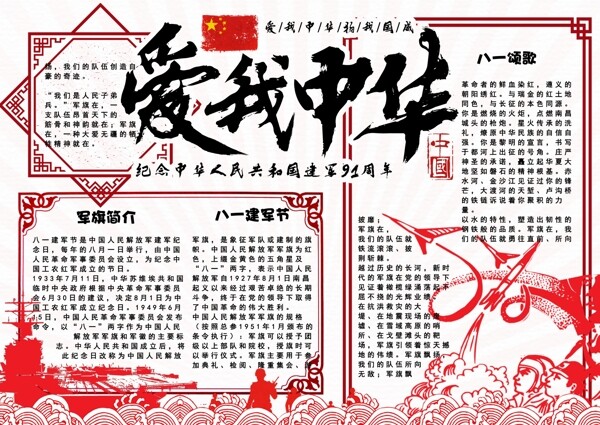 爱/我/中/华/扬/我/国/威
爱我中华
中國
纪念中华人民共和国建军91周年
扬，我们的队伍创造自
豪的奇迹。
“我们是人民子弟
兵。”军旗在，一
支队伍昂首天下的
筋骨和神韵就在；军旗
在，一种大爱无疆的牺
牲精神就在。
军旗简介
八一建军节是中国人民解放军建军纪
念日，每年的八月一日举行，由中国
人民革命军事委员会设立，为纪念中
国工农红军成立的节日。
1933年7月11日，中华苏维埃共和国
临时中央政府根据中央革命军事委员
会6月30日的建议，决定8月1日为中
国工农红军成立纪念日。1949年6月
15日，中国人民革命军事委员会发布
命令，以“八一”两字作为中国人民
解放军军旗和军徽的主要标
志。中华人民共和国成立后，将
此纪念日改称为中国人民解放军
八一建军节
军旗，是象征军队或建制的旗
帜。中国人民解放军军旗为红
色，上缀金黄色的五角星及
“八一”两字，表示中国人民
解放军自1927年8月1日南昌
起义以来经过艰苦卓绝的长期
斗争，终于在党的领导下取得
了中国革命的伟大胜利。
中国人民解放军军旗的规格
（按照总参1951年1月颁布的
条令执行）：军旗可以授予团
级以上部队和院校，授旗时可
以举行仪式。军旗主要用于参
加典礼、检阅、隆重集会、游
八一颂歌
革命者的鲜血染红，遵义的
朝阳绣红。与瑞金的红土地
同色，与长征的本色同源。
你是燃烧的火炬，点燃南昌
城头的枪炮。星火传承的洗
礼，燎原中华民族的自信自
强。你是黎明的宣言，书写
于都河上出征的号角。庄严
神圣的承诺，矗立起华夏大
地坚如磐石的精神根基。赤
水河、金沙江见证过你的锋
芒，大渡河的天堑、卢沟桥
的铁链诉说着你聚积的力
量。
以水的特性，塑造出韧性的
钢铁般的品质。军旗在，我
们的队伍就勇往直前，所向
披靡；
军旗在，
我们的队伍就
铁流滚滚、披
荆斩棘。
越过历史的长河，新时
代的军旗在党的领导下
见证着橄榄绿涌荡起不
屈不挠的光辉业绩。
在抗洪救灾的大
堤、在地震现场的废
墟、在雪域高原的哨
所、在戈壁滩头的靶
场，军旗引领着惊天撼
地的伟绩。军旗飘扬，
我们的队伍所向
无敌；军旗飘